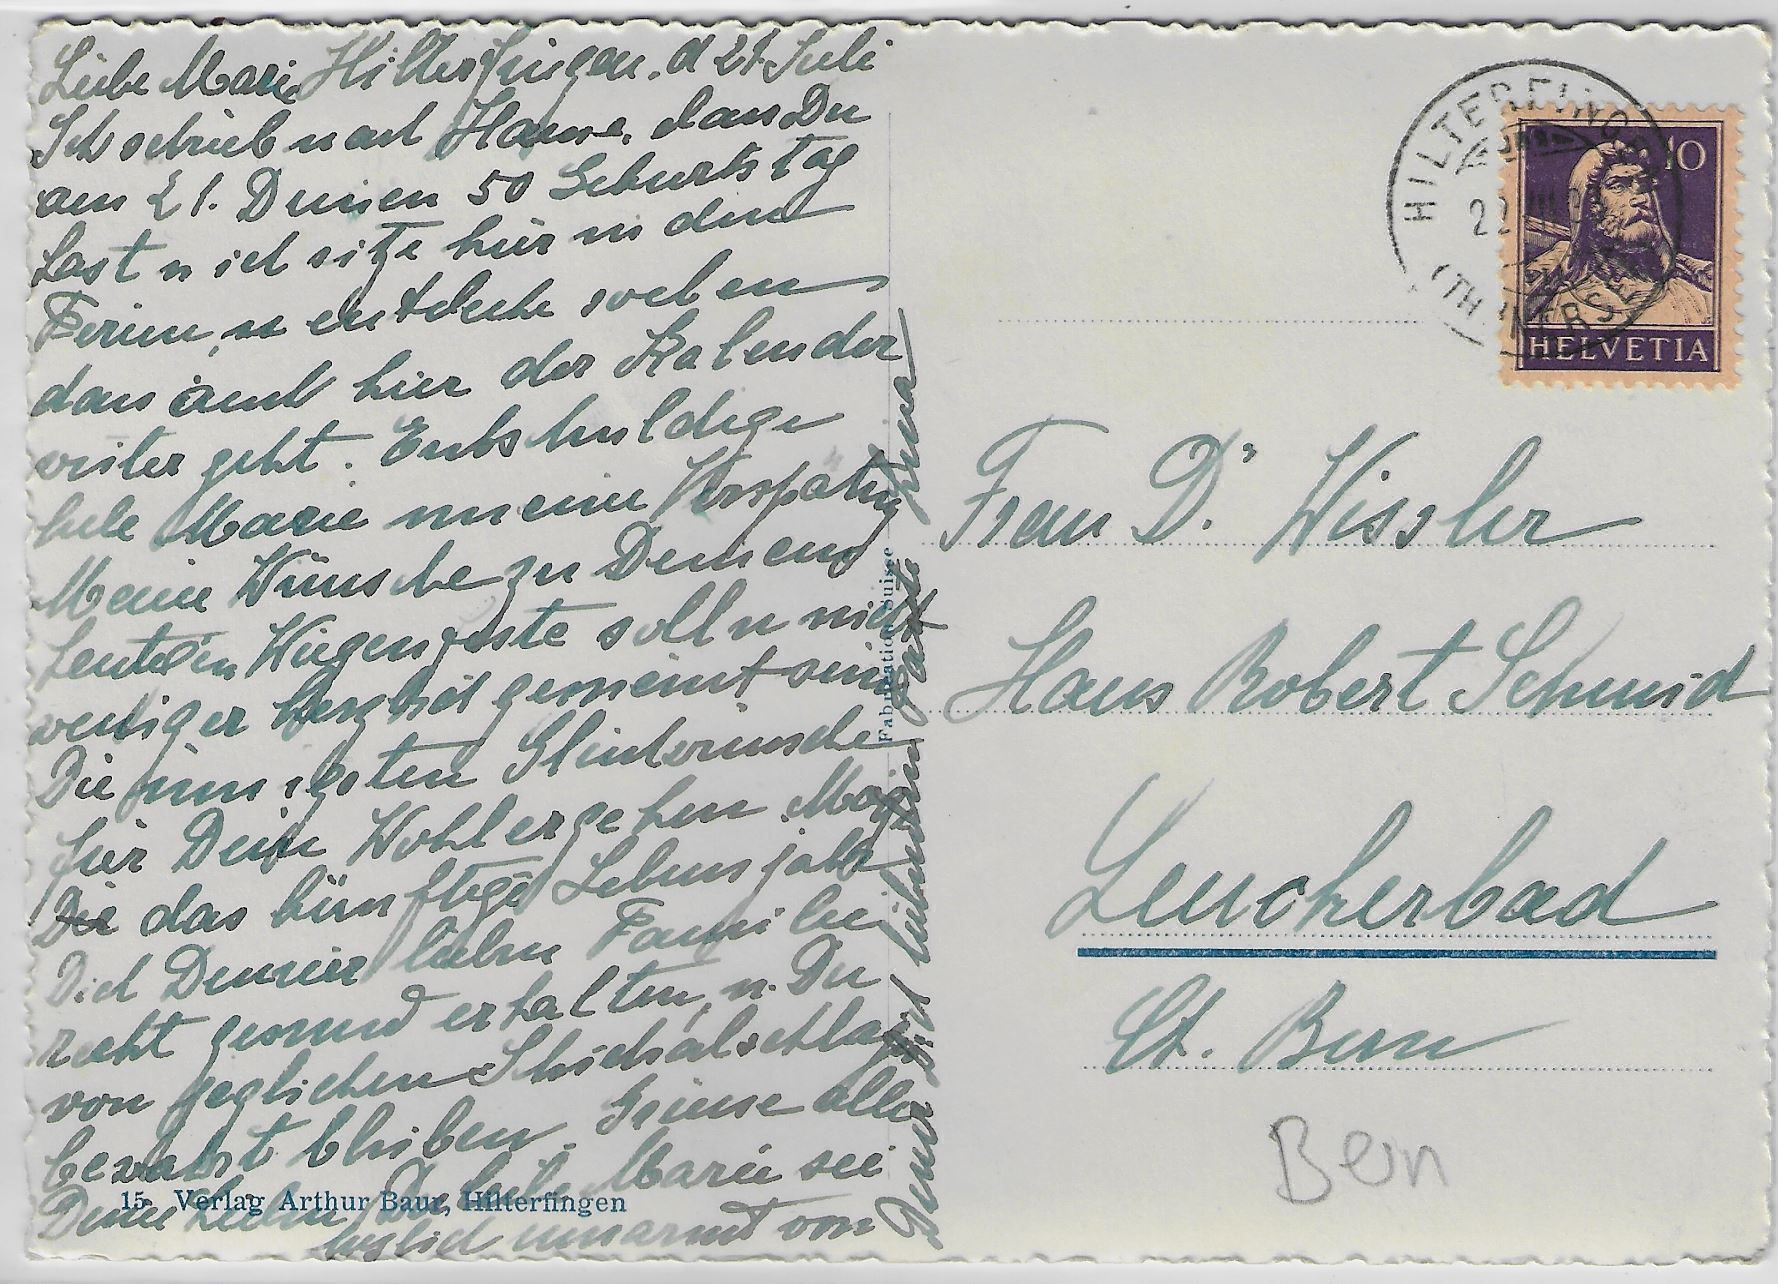 Liebe Marie Hilterfingen. d 21 Juli
Ich schrieb nach Hause, dass Du
am 21. Deinen 50 Geburtstag
hast u ich sitze hier in den
Ferien, u entdecke soeben
dass auch hier der Kalender
weiter geht. Entschuldige
liebe Marie meine Verspätung
Meine Wünsche zu Deinem
Wiegenfeste sollen nicht
weniger herzlich gemeint sein
Die innigsten Glückwünsche
für Dein Wohlergehen. Möge
Dir das künftige Lebensjahr
Dich Deiner lieben Familie
recht gesund erhalten, u. Du
von jeglichen Schicksalschlag
bewahrt bleiben. Grüsse alle
Deine Lieben, Du liebe Marie sei
herzlich umarmt von
Deiner Dich liebenden Tante
15 Verlag Arthur Baur, Hilterfingen
Fabrication Suisse
HILTERFINGEN
22
(THUNERSEE)
10
HELVETIA
Frau Dr. Wissler
Haus Robert Schmid
Leuckerbad
Ct. Bern
Bern